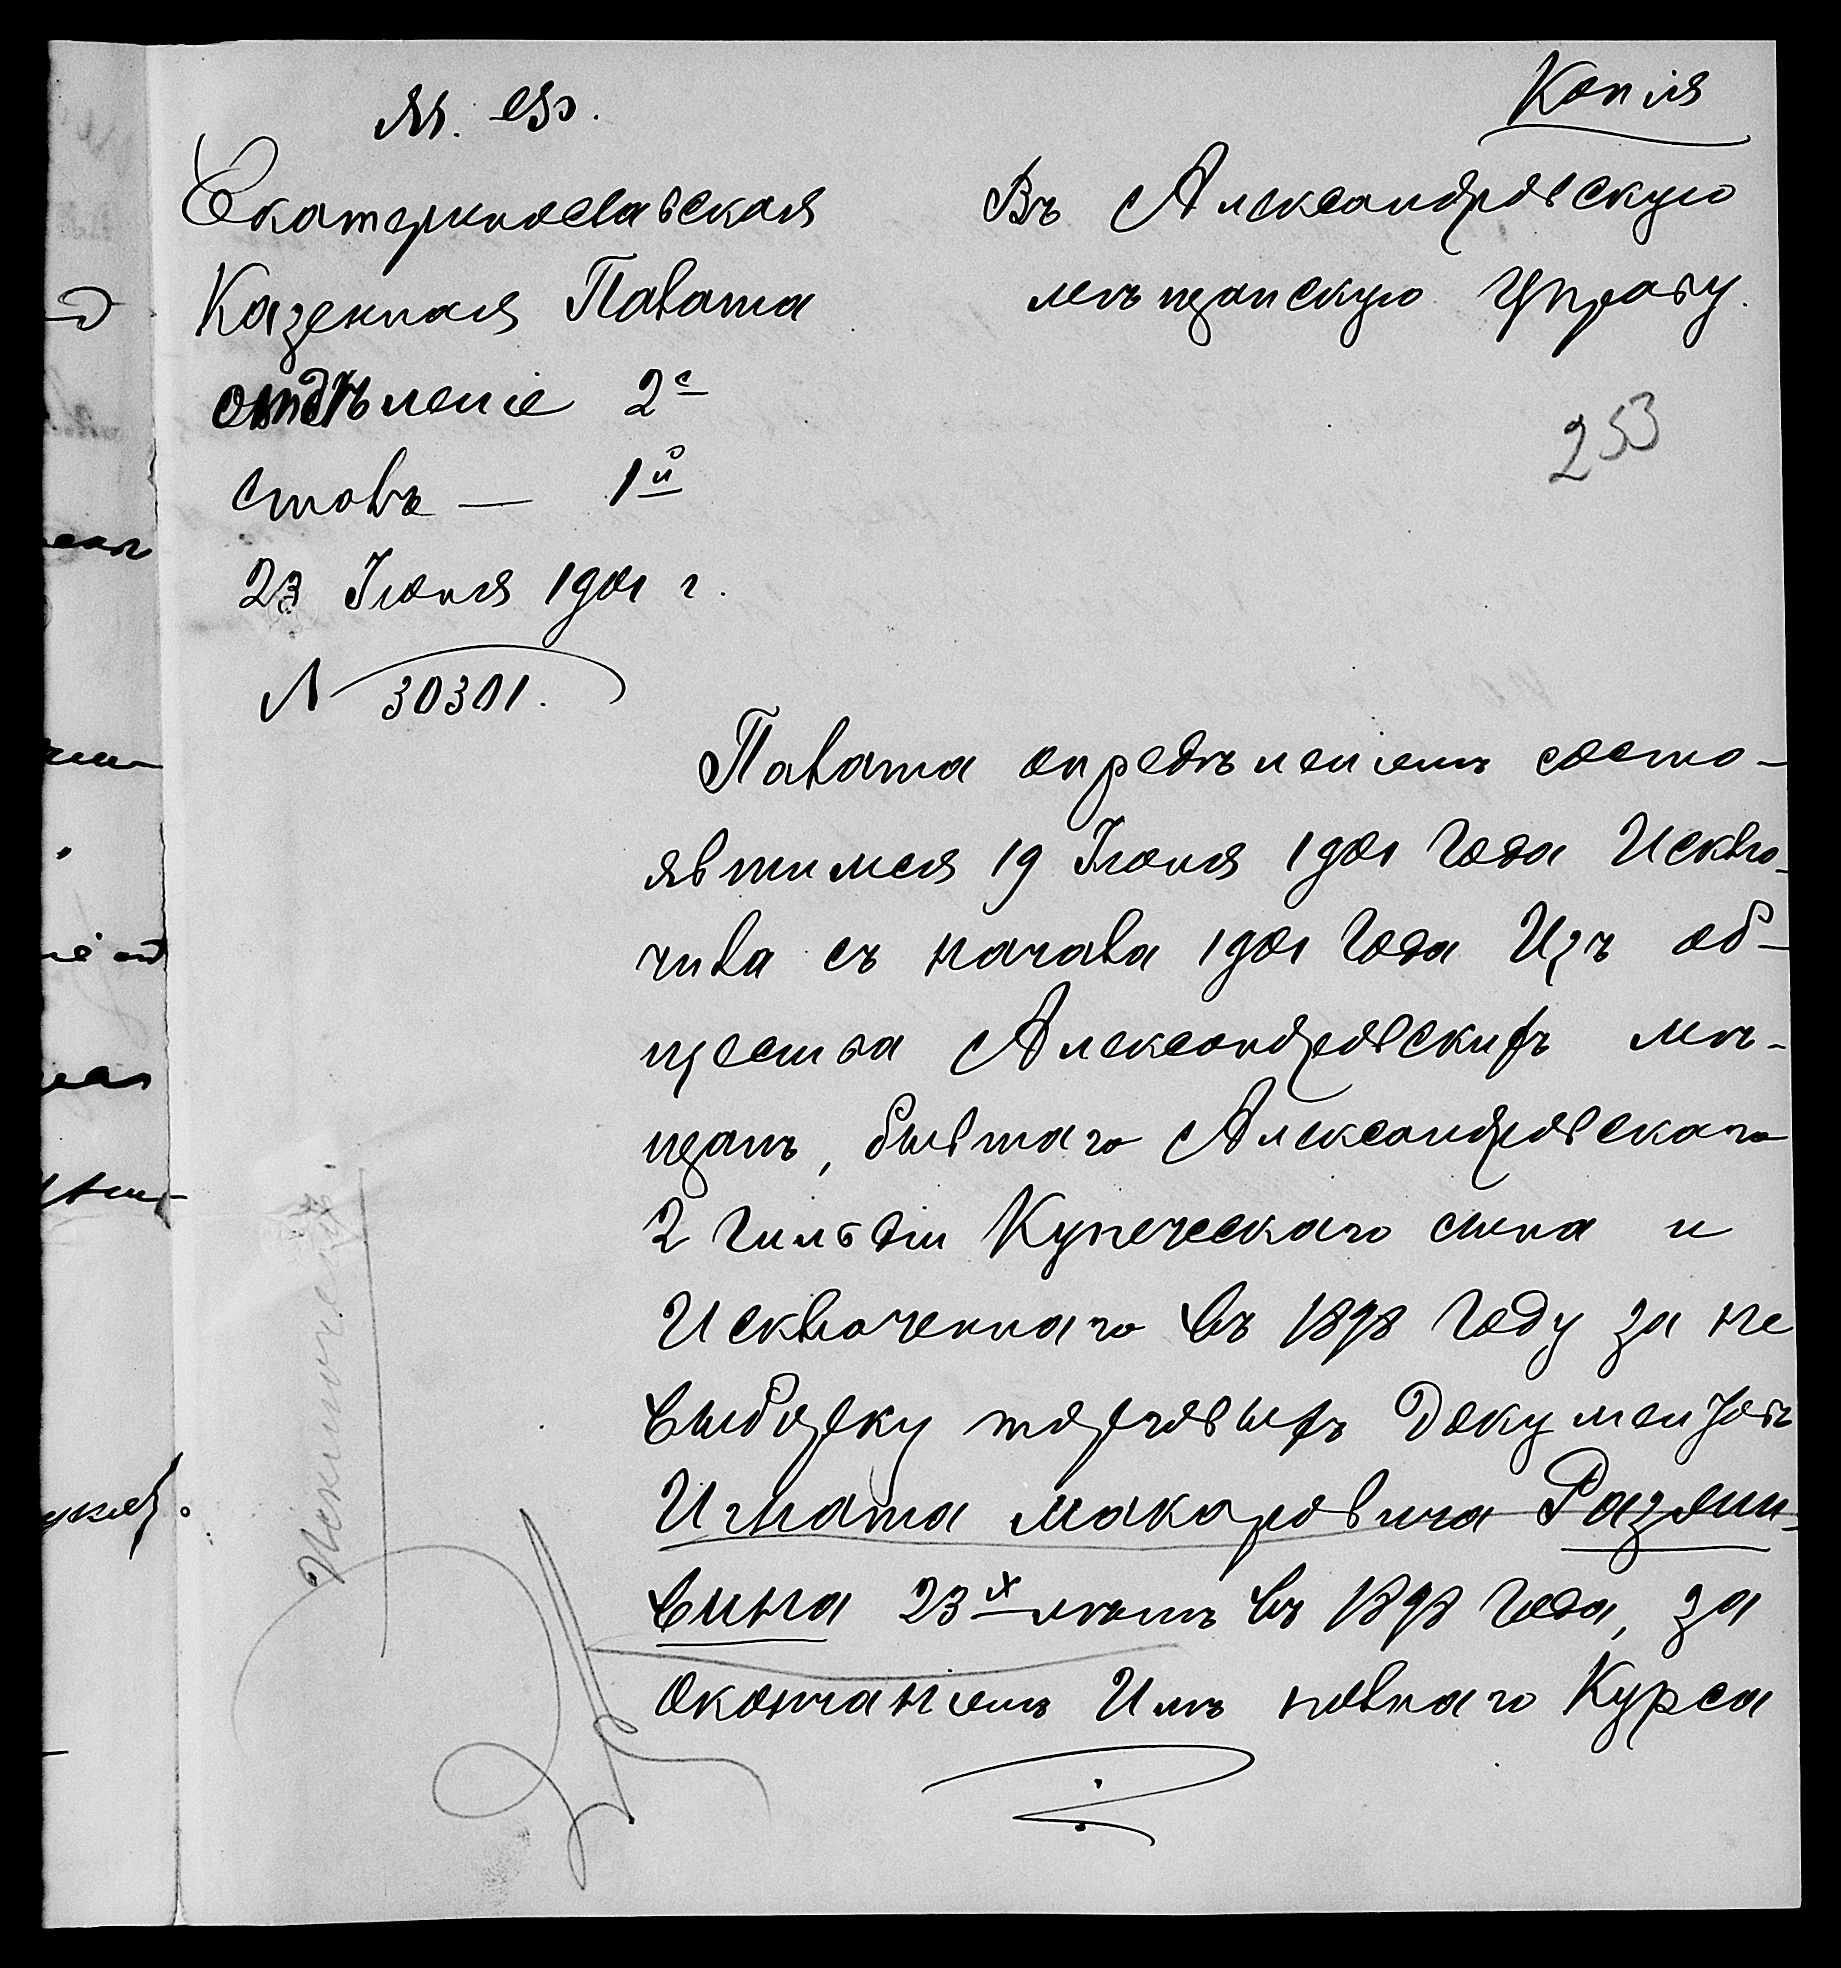 Копія
М. Ф.
Екатеринославская
Казенная Палата
отдѣленіе 2е
столъ — 1й
23 Іюня 1901 г.
N 30301.
Въ Александровскую
мѣщанскую Управу.
253
Палата опредѣленіемъ состо-
явшимся 19 Іюня 1901 года Исклю-
чила съ начала 1901 года Изъ об-
щества Александровскихъ мѣ-
щанъ, бывшаго Александровскаго
2 гильдіи Купеческаго сына и
Исключеннаго въ 1898 году за не
выборку торговыхъ документовъ
Игната Макаровича Разли-
вина 23х лѣтъ въ 1898 года, за
окончаніемъ Имъ полнаго Курса
Исключенъ.